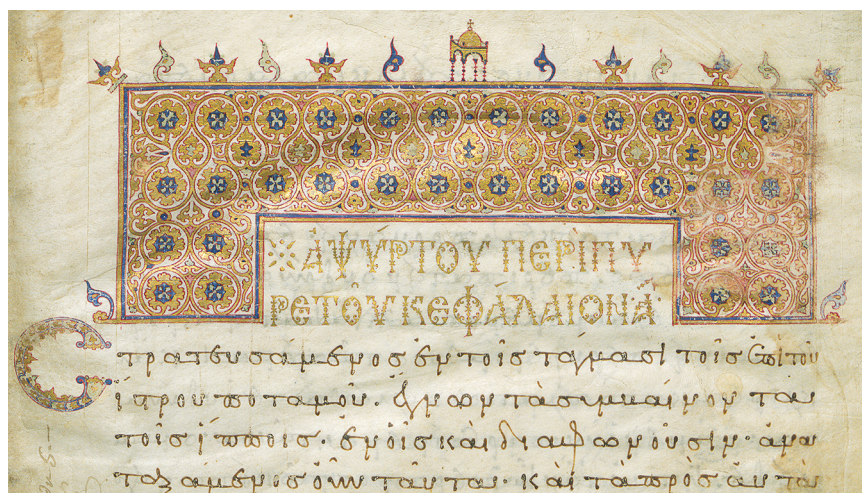 ἈΨΎΡΤΟΥ ΠΕΡῚ ΠΥ
ΡΕΤΟΥ͂ ΚΕΦΆΛΑΙΟΝ Α
Στρατευσάμενος ἐν τοῖς τάγμασι τοῖς ἐπὶ τοῦ
ἴστρου ποταμοῦ. ἔγνων τὰ συμβαίνοντα
τοῖς ἵπποις. ἐν οἷς καὶ διαφωνοῦσιν. ἀνα
ταξάμενος οὖν ταῦτα. καὶ τὰ πρὸς αὐτὰ